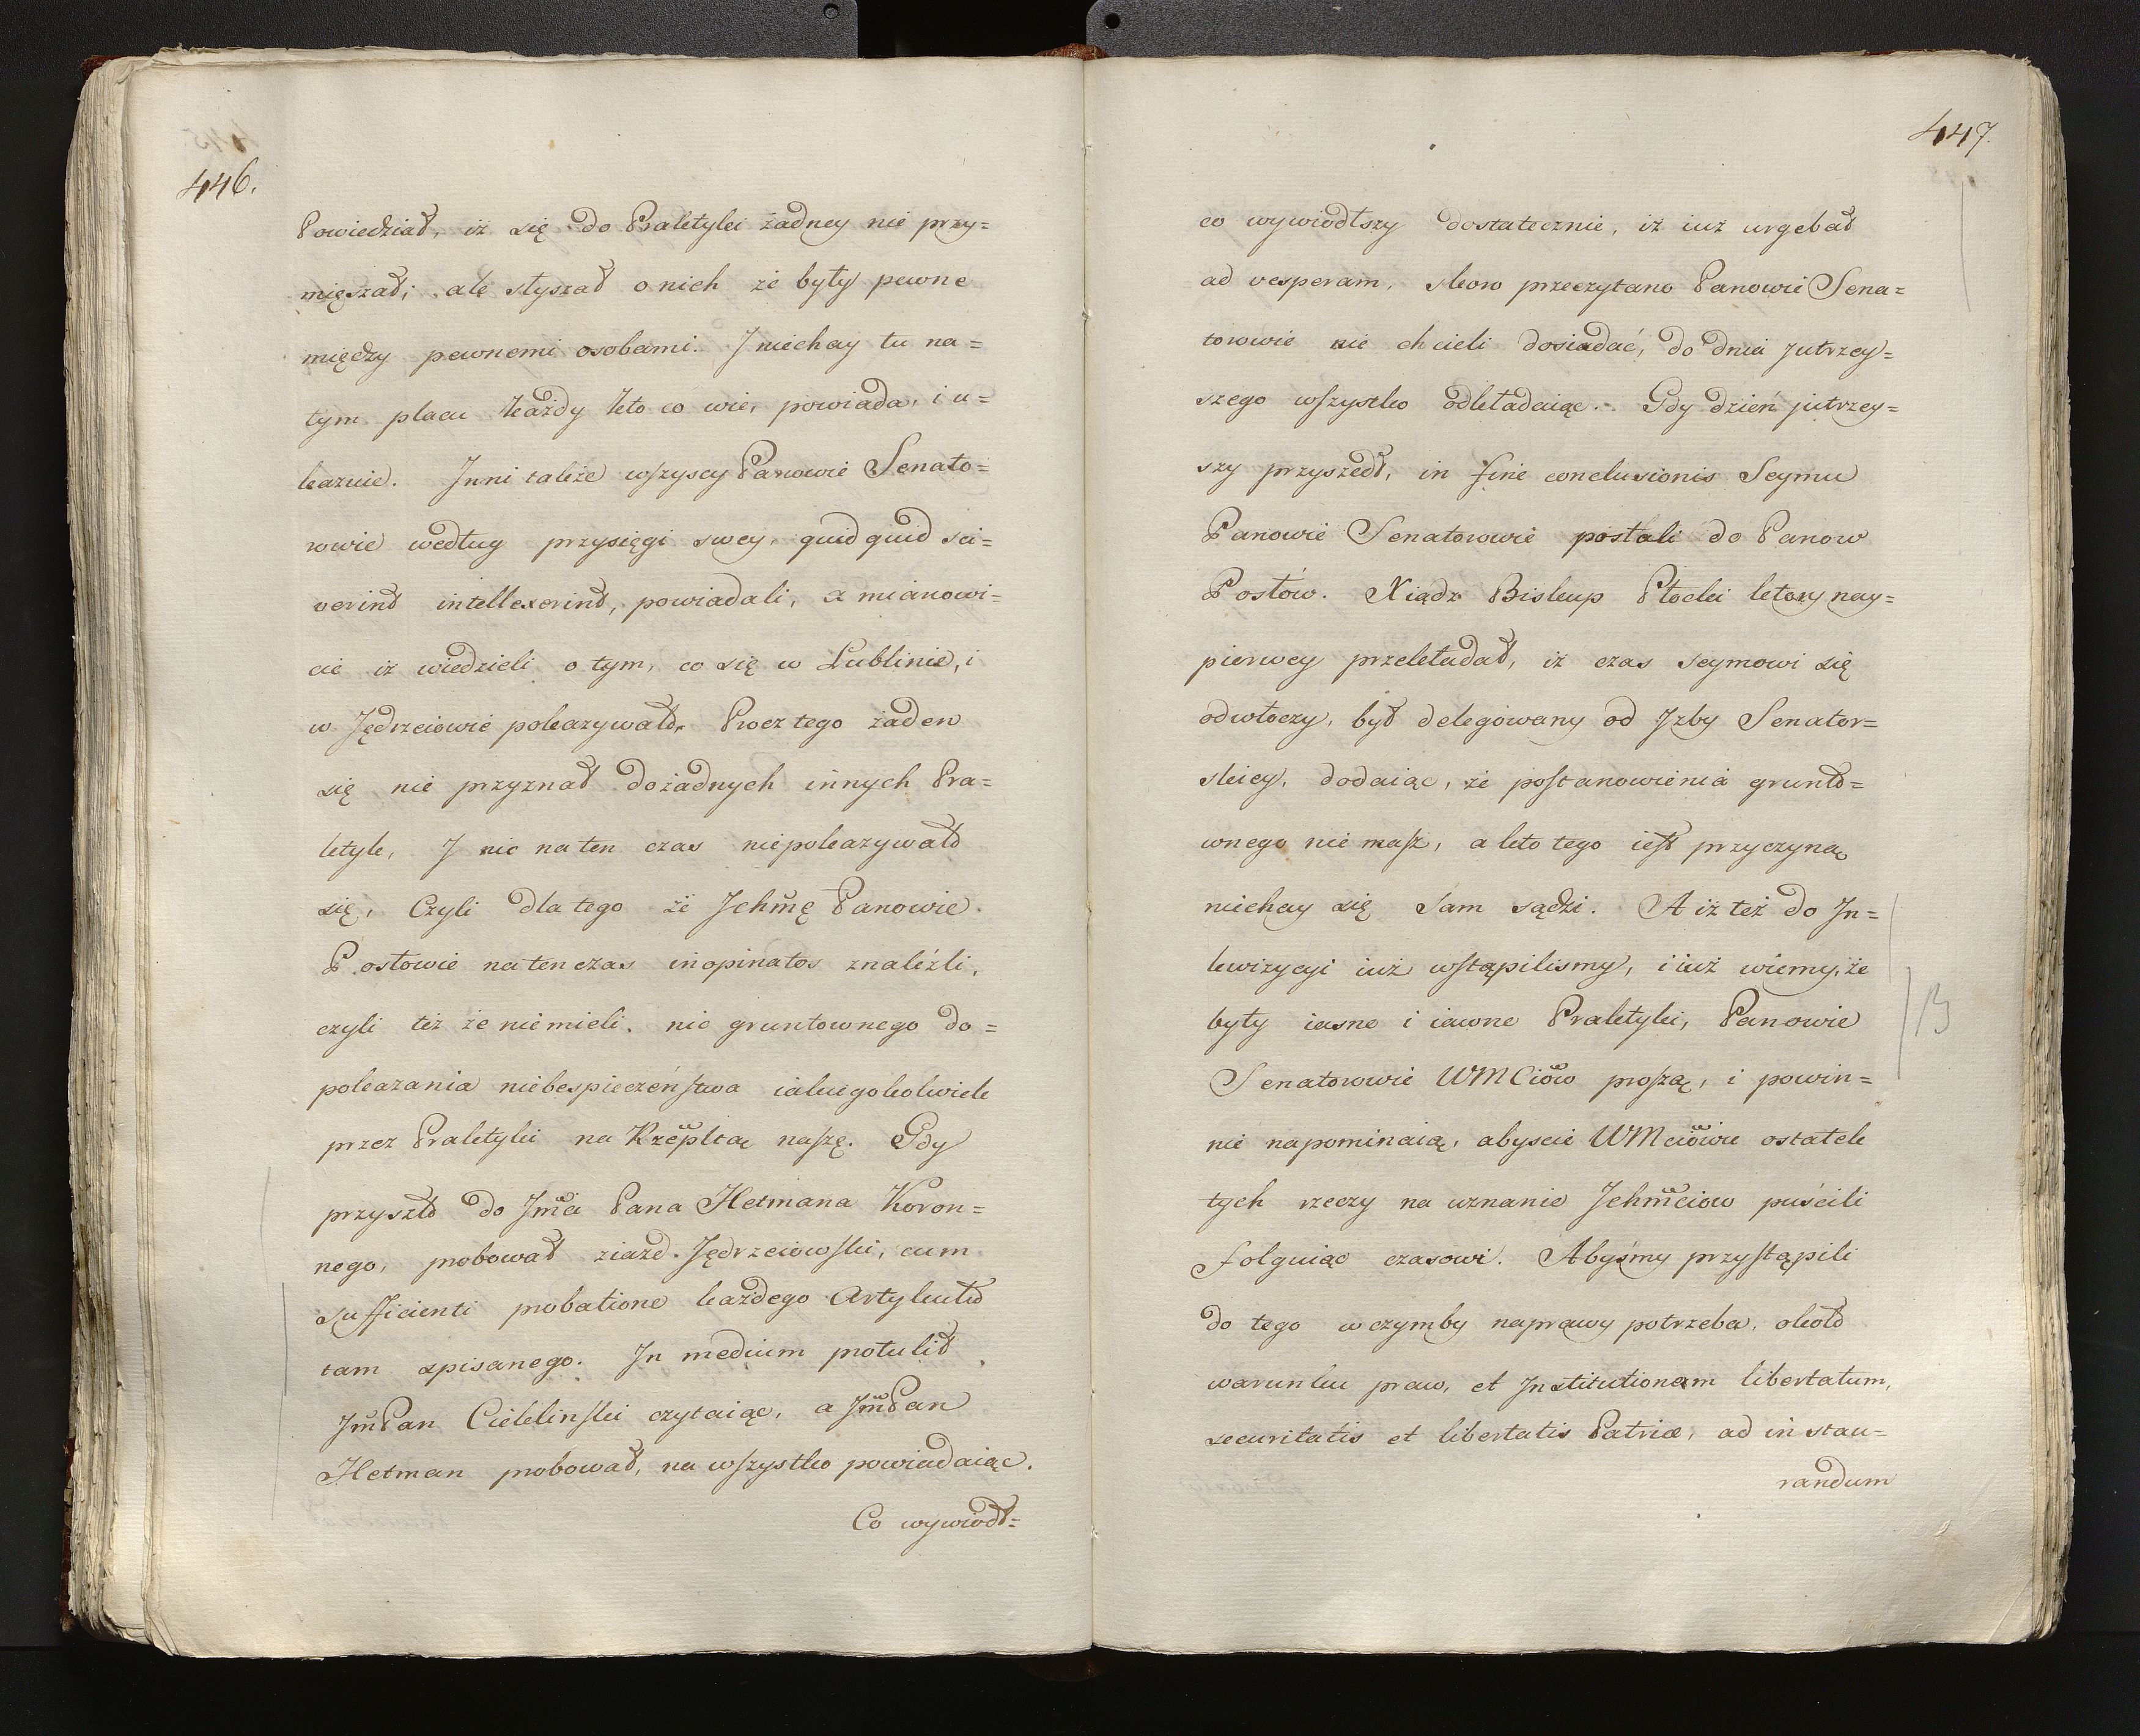 446.
Powiedział, iż się do Praktyki żadney nie przy=
mięszał; ale słyszał o nich że były pewne
między pewnemi osobami. J niechay tu na=
tym placu każdy kto co wie, powiada, i u=
kazuie. Jnni także wszyscy Panowie Senato=
rowie według przysięgi swey, quid quid sci=
verint intellexerint, powiadali, a mianowi=
cie iż wiedzieli o tym, co się w Lublinie, i
w Jędrzeiowie pokazywało, Procz tego żaden
się nie przyznał do żadnych innych Pra=
ktyk, J nic na ten czas nie pokazywało
się, Czyli dla tego że Jchmę Panowie
Posłowie na ten czas inopinatos znaliźli,
czyli też że nie mieli nic gruntownego do=
pokazania niebespieczeństwa iakiegokolwiek
przez Praktyki na Rzeplta naszę. Gdy
przyszło do Jmci Pana Hetmana Koron=
nego, probował ziazd Jędrzeiowski, cum
sufficienti probatione każdego Artykułu
tam spisanego. Jn medium protulit
Jm Pan Cieklinski czytaiąc, a Jm Pan
Hetman probował, na wszystko powiadaiąc.
Co wywiodł=
447.
co wywiodłszy dostatecznie, iż iuż urgebat
ad vesperam, skoro przeczytano Panowie Sena=
torowie nie chcieli dosiadać, do dnia Jutrzey=
szego wszystko odkładaiąc. Gdy dzień jutrzey=
szy przyszedł, in fine conclusionis Seymu
Panowie Senatorowie posłali do Panow
Posłów. Xiądz Biskup Płocki ktory nay=
pierwey przekładał, iż czas seymowi się
odwłoczy, był delegowany od Jzby Senator=
skiey, dodaiąc, że postanowienia grunto=
wnego nie masz, a kto tego iest przyczyną
niechay się sam sądzi. A iż też do Jn=
kwizycyi iuż wstąpilismy, i iuż wiemy, że
były iasne i iawne Praktyki, Panowie
Senatorowie WMCiow proszą, i powin=
nie napominaią, abyscie WMciowie ostatek
tych rzeczy na uznanie Jchmciow puścili
folguiąc czasowi. Abyśmy przystąpili
do tego w czymby naprawy potrzeba, około
warunku praw, et Jnstitutionem libertatum,
securitatis et libertatis Patriæ, ad instau=
randum